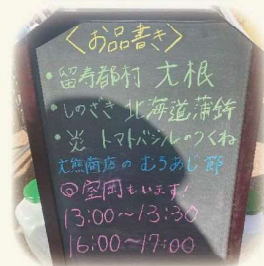 <お品書き>
・留寿都村 大根
・しのざき 北海道蒲鉾
・炎 トマトバジルのつくね
大熊商店の むろあじ節
@室岡もいます!
13:00~13:30
16:00~17:00